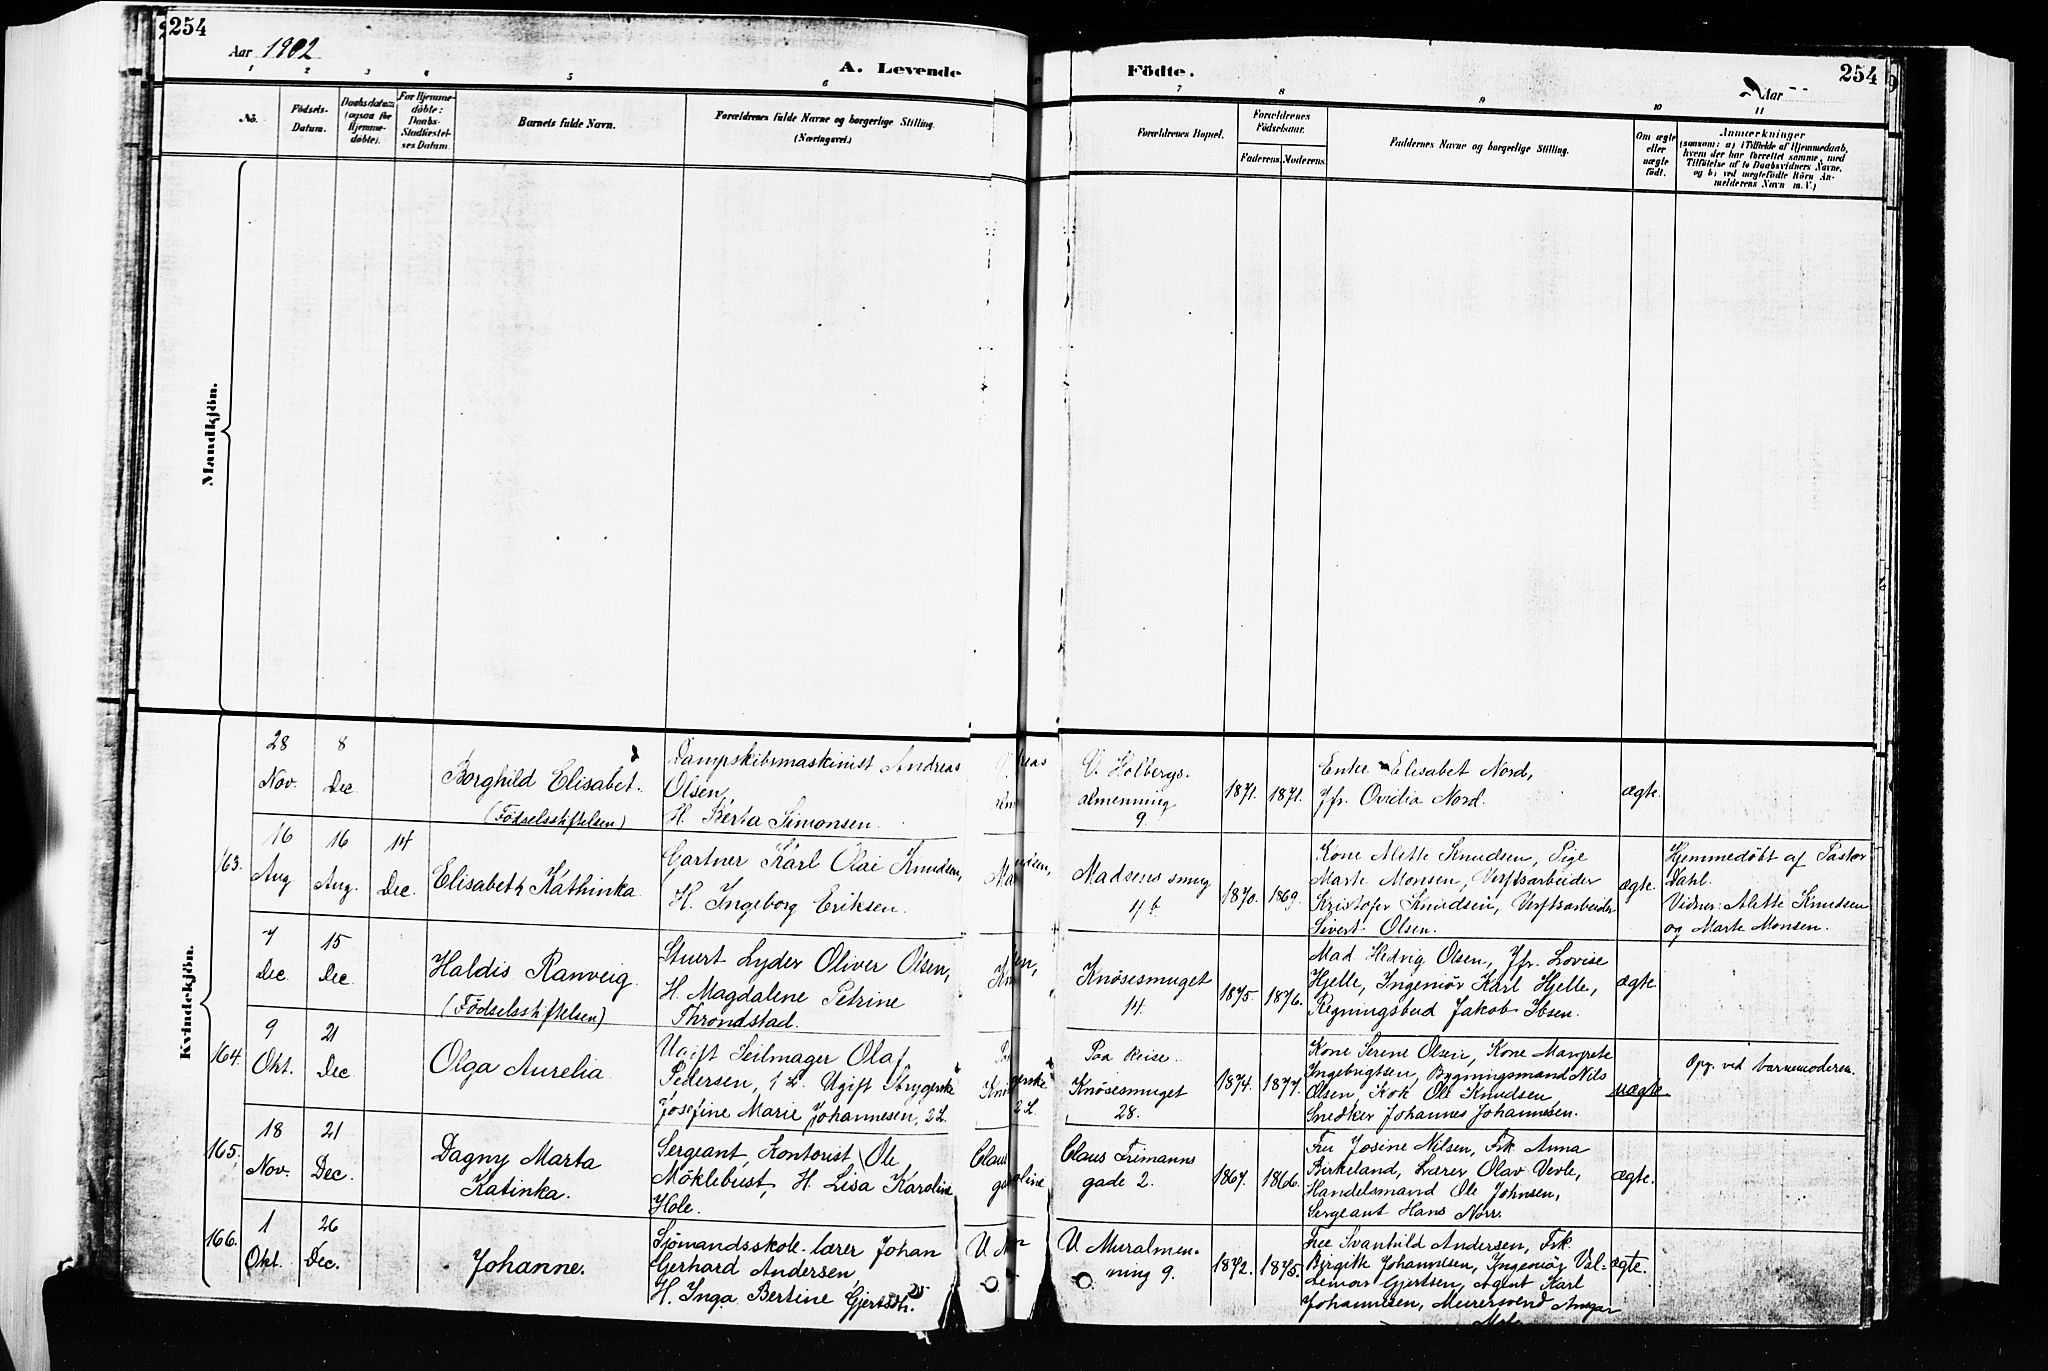 254
Aar 1902
A. Levende
1 2 3 4 5 6
No.
Födsels-
Datum.
Daabsdatum
(ogsaa for
Hjemme-
döbte).
For Hjemme-
döbte:
Daabs-
Stadfæstel-
ses Datum.
Barnets fulde Navn.
Forældrenes fulde Navne og borgerlige Stilling.
(Næringsvei.)
Mandkjön.
Kvindekjön.
28
Nov.
8
Dec
Borghild Elisabet.
(Födselsstiftelsen)
Dampskibsmaskinist Andreas
Olsen,
H. Berta Simonsen.
163.
16
Aug
16
Aug.
14
Dec.
Elisabeth Kathinka
Gartner Karl Olai Knudsen,
H. Ingeborg Eriksen.
7
Dec
15
Dec
Haldis Ranveig.
(Födselsstiftelsen)
Stuert Lyder Oliver Olsen,
H. Magdalene Petrine
Throndstad.
164.
9
Okt.
21
Dec
Olga Aurelia
Ugift Seilmager Olaf
Pedersen, 1 L. Ugift Strygerske
Josefine Marie Johannesen, 2 L.
165.
18
Nov.
21
Dec.
Dagny Marta
Katinka.
Sergeant, Kontorist Ole
Möklebust, H. Lisa Karoline
Hole.
166.
1
Okt.
26
Dec.
Johanne.
Sjömandsskole-lærer Johan
Gerhard Andersen,
H. Inga Bertine
Födte.
254
Aar
7 8 9 10 11
Forældrenes Bopæl.
Forældrenes
Födselsaar.
Faderens. Moderens.
Faddernes Navne og borgerlige Stilling.
Om ægte
eller
uægte
födt.
Anmærkninger
(saasom: a) i Tilfælde af Hjemmedaab,
hvem der har forrettet samme, med
Tilföielse af to Daabsvidners Navne,
og b) ved uægtefödte Börn An-
melderens Navn m. V.)
V. Holbergs-
almenning
9.
1871. 1871.
Enke Elisabet Nord,
Jfr. Ovidia Nord.
ægte.
Madsens smug
4 b.
1870. 1869.
Kone Alette Knudsen, Pige
Marte Monsen, Verftsarbeider
Kristofer Knudsen, Verftsarbeider
Sivert Olsen.
ægte.
Hjemmedöbt af Pastor
Dahl.
Vidner: Alette Knudsen
og Marte Monsen.
Knösesmuget
14.
1875. 1876.
Mad Hedvig Olsen, Jfr. Lovise
Hjelle, Ingeniör Karl Hjelle,
Regningsbud Jakob Ibsen.
ægte
Paa Reise.
Knösesmuget
28.
1874. 1877.
Kone Serine Olsen, Kone Margrete
Ingebrigtsen, Bygningsmand Nils
Olsen, Kok Ole Knudsen
Snedker Johannes Johannesen.
uægte
Opg. ved barnemoderen.
Claus Frimanns
gade 2.
1867. 1866.
Fru Josine Nilsen, Frk Anna
Birkeland, Lærer Olav Verle,
Handelsmand Ole Johnsen,
Sergeant Hans Norr.
ægte.
V. Muralmen-
ning 9.
1872. 1875.
Fru Svanhild Andersen, Frk.
Birgitte Johannesen, Ingeniör Val-
demar Gjertsen, Agent Karl
Johannesen, Murersvend Ansgar
ægte.